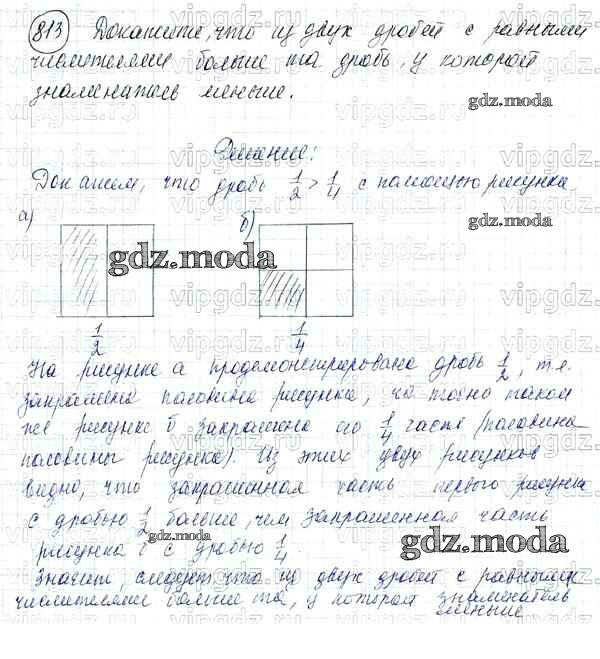 813 Докажите, что из двух дробей с равными
числителями больше та дробь, у которой
знаменатель меньше.
gdz.moda
Решение:
Докажем, что дробь 1/2 > 1/4 с помощью рисунка.
а) б)
gdz.moda
1/2 1/4
На рисунке а продемонстрирована дробь 1/2, т.е.
закрашена половина рисунка, на точно таком
же рисунке б закрашена 1/4 часть (половина
половины рисунка). Из этих двух рисунков
видно, что закрашенная часть первого рисунка
с дробью 1/2 больше, чем закрашенная часть
рисунка б с дробью 1/4.
gdz.moda
Значит, следует, что из двух дробей с равными
числителями больше та, у которой знаменатель
меньше